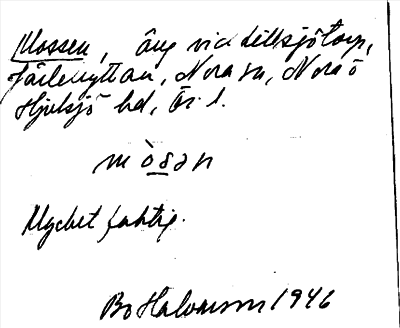 Mossen, äng vid Lillsjötorp,
Järlehyttan, Nora sn, Nora o
Hjulsjö hd, Ör. l.
mòsən
Mycket fuktig.
Bo Halvarson 1946